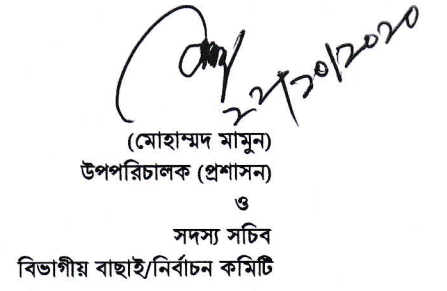 ২২/১০/২০২০
(মোহাম্মদ মামুন)
উপপরিচালক (প্রশাসন)
ও
সদস্য সচিব
বিভাগীয় বাছাই/নির্বাচন কমিটি